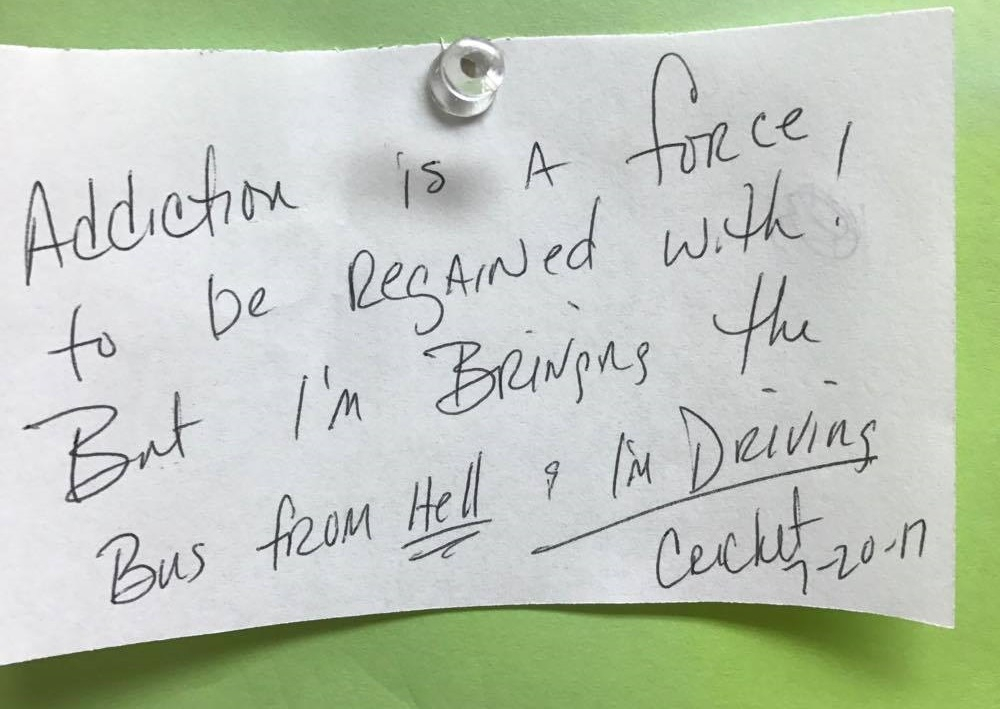 Addiction is A force,
to be RegAined with!
But I'm Bringing the
Bus from Hell & I'm Driving
Cricket
7-20-17